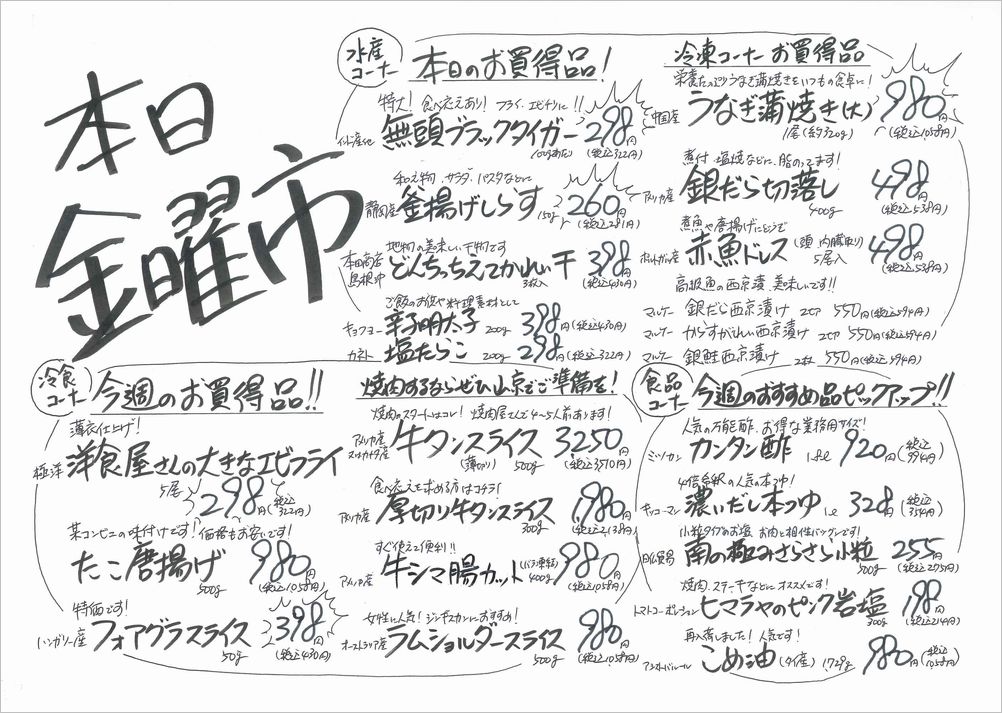 本日
金曜市
水産
コーナー
本日のお買得品!
特大!食べ応えあり!フライ、エビチリに!!
インド産他 無頭ブラックタイガー 298円
100gあたり (税込322円)
和え物、サラダ、パスタなどに
静岡産 釜揚げしらす 150g 260円
(税込281円)
地物の美味しい干物です
本田商店
島根沖
どんちっちえてかれい干 3枚入 398円
(税込430円)
ご飯のお供や料理素材として
キョクヨー 辛子明太子 200g 398円(税込430円)
カネト 塩たらこ 200g 298円(税込322円)
冷凍コーナー お買得品
栄養たっぷりうなぎ蒲焼きをいつもの食卓に!
中国産 うなぎ蒲焼き(大) 980円
1尾(約320g) (税込1058円)
煮付、塩焼などに、脂のってます!
アメリカ産 銀だら切落し 498円
400g (税込538円)
煮魚や唐揚げにどうぞ
ポルトガル産 赤魚ドレス (頭、内臓取り) 5尾入 498円
(税込538円)
高級魚の西京漬、美味しいです!!
マルケー 銀だら西京漬け 2切 550円(税込594円)
マルケー からすがれい西京漬け 2切 550円(税込594円)
マルケー 銀鮭西京漬け 2切 550円(税込594円)
冷食
コーナー
今週のお買得品!!
薄衣仕上げ!
極洋 洋食屋さんの大きなエビフライ
5尾 298円(税込322円)
某コンビニの味付けです!価格もお安いです!
たこ唐揚げ 500g 980円
(税込1058円)
特価です!
ハンガリー産 フォアグラスライス 50g 398円
(税込430円)
焼肉するならぜひ山京でご準備を!
焼肉のスタートはコレ!焼肉屋さんで4〜5人前あります!
アメリカ産
牛タンスライス 3250円
(薄切り) 500g (税込3510円)
食べ応えを求める方はコチラ!
アメリカ産 厚切り牛タンスライス 1,980円
300g (税込2,138円)
すぐ使えて便利!!
アメリカ産 牛シマ腸カット (バラ凍結) 400g 980円
(税込1058円)
女性に人気!ジンギスカンにおすすめ!
オーストラリア産 ラムショルダースライス 980円
500g (税込1058円)
食品
コーナー
今週のおすすめ品ピックアップ!!
人気の万能酢、お得な業務用サイズ!
ミツカン カンタン酢 1.8ℓ 920円(税込994円)
4倍希釈の人気の本つゆ!
キッコーマン 濃いだし本つゆ 1ℓ 328円(税込354円)
小粒タイプのお塩、お肉と相性バツグンです!
南の極みさらさら小粒 500g 255円
(税込275円)
焼肉、ステーキなどにオススメです!
トマトコーポレーション ヒマラヤのピンク岩塩 300g 198円
(税込214円)
再入荷しました!人気です!
こめ油(タイ産) 1,729g 980円(税込1058円)